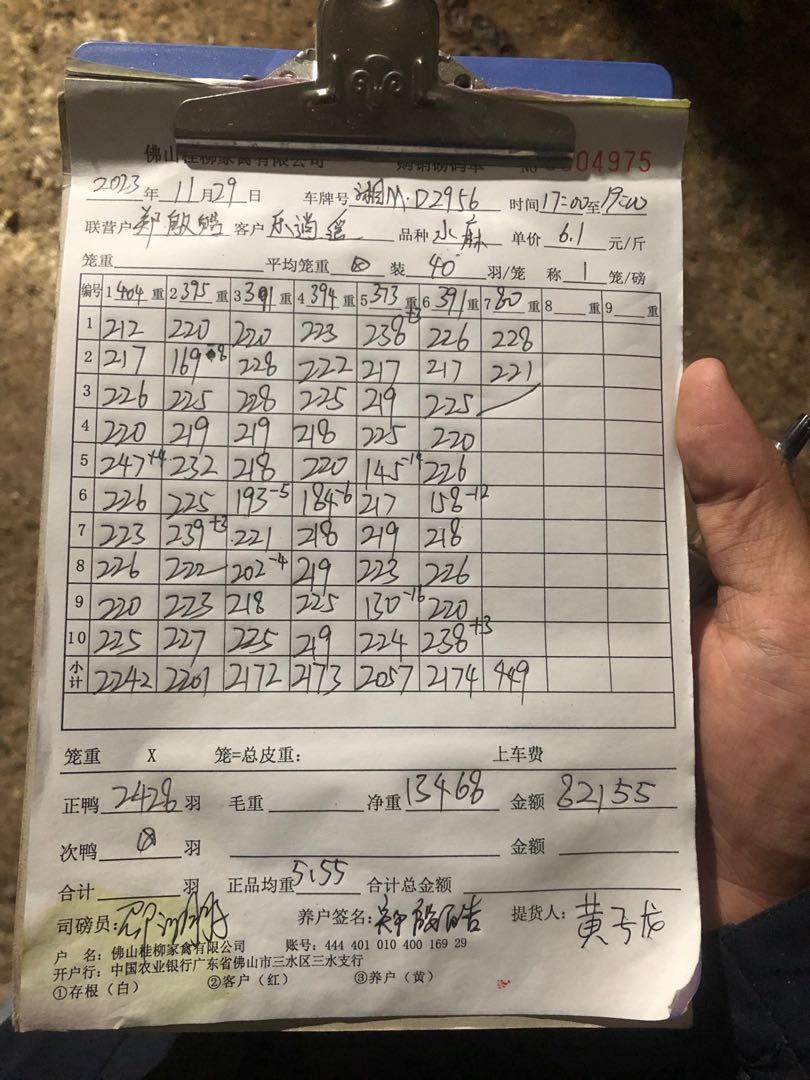 佛山桂柳家禽有限公司 购销磅码单 №004975
2023年11月29日 车牌号 湘M·D2956 时间17:00至19:00
联营户 郑殷皓 客户 乐逍遥 品种 水麻 单价 6.1 元/斤
笼重 平均笼重 装 40 羽/笼 称 1 笼/磅
编号 1 404 重 2 395 重 3 391 重 4 394 重 5 373 重 6 391 重 7 80 重 8 重 9 重
1 212 220 220 223 238+3 226 228
2 217 169-8 228 222 217 217 221
3 226 225 228 225 219 225
4 220 219 219 218 225 220
5 247+4 232 218 220 145-14 226
6 226 225 193-5 184-6 217 158-12
7 223 239+3 221 218 219 218
8 226 222 202-4 219 223 226
9 220 223 218 225 130-16 220
10 225 227 225 219 224 238+3
小计 2242 2201 2172 2173 2057 2174 449
笼重 X 笼=总皮重: 上车费
正鸭 2428 羽 毛重 净重 13468 金额 82155
次鸭 羽 金额
合计 羽 正品均重 5.55 合计总金额
司磅员: 养户签名: 郑殷皓 提货人: 黄
户 名: 佛山桂柳家禽有限公司 账号: 444 401 010 400 169 29
开户行: 中国农业银行广东省佛山市三水区三水支行
①存根(白) ②客户(红) ③养户(黄)